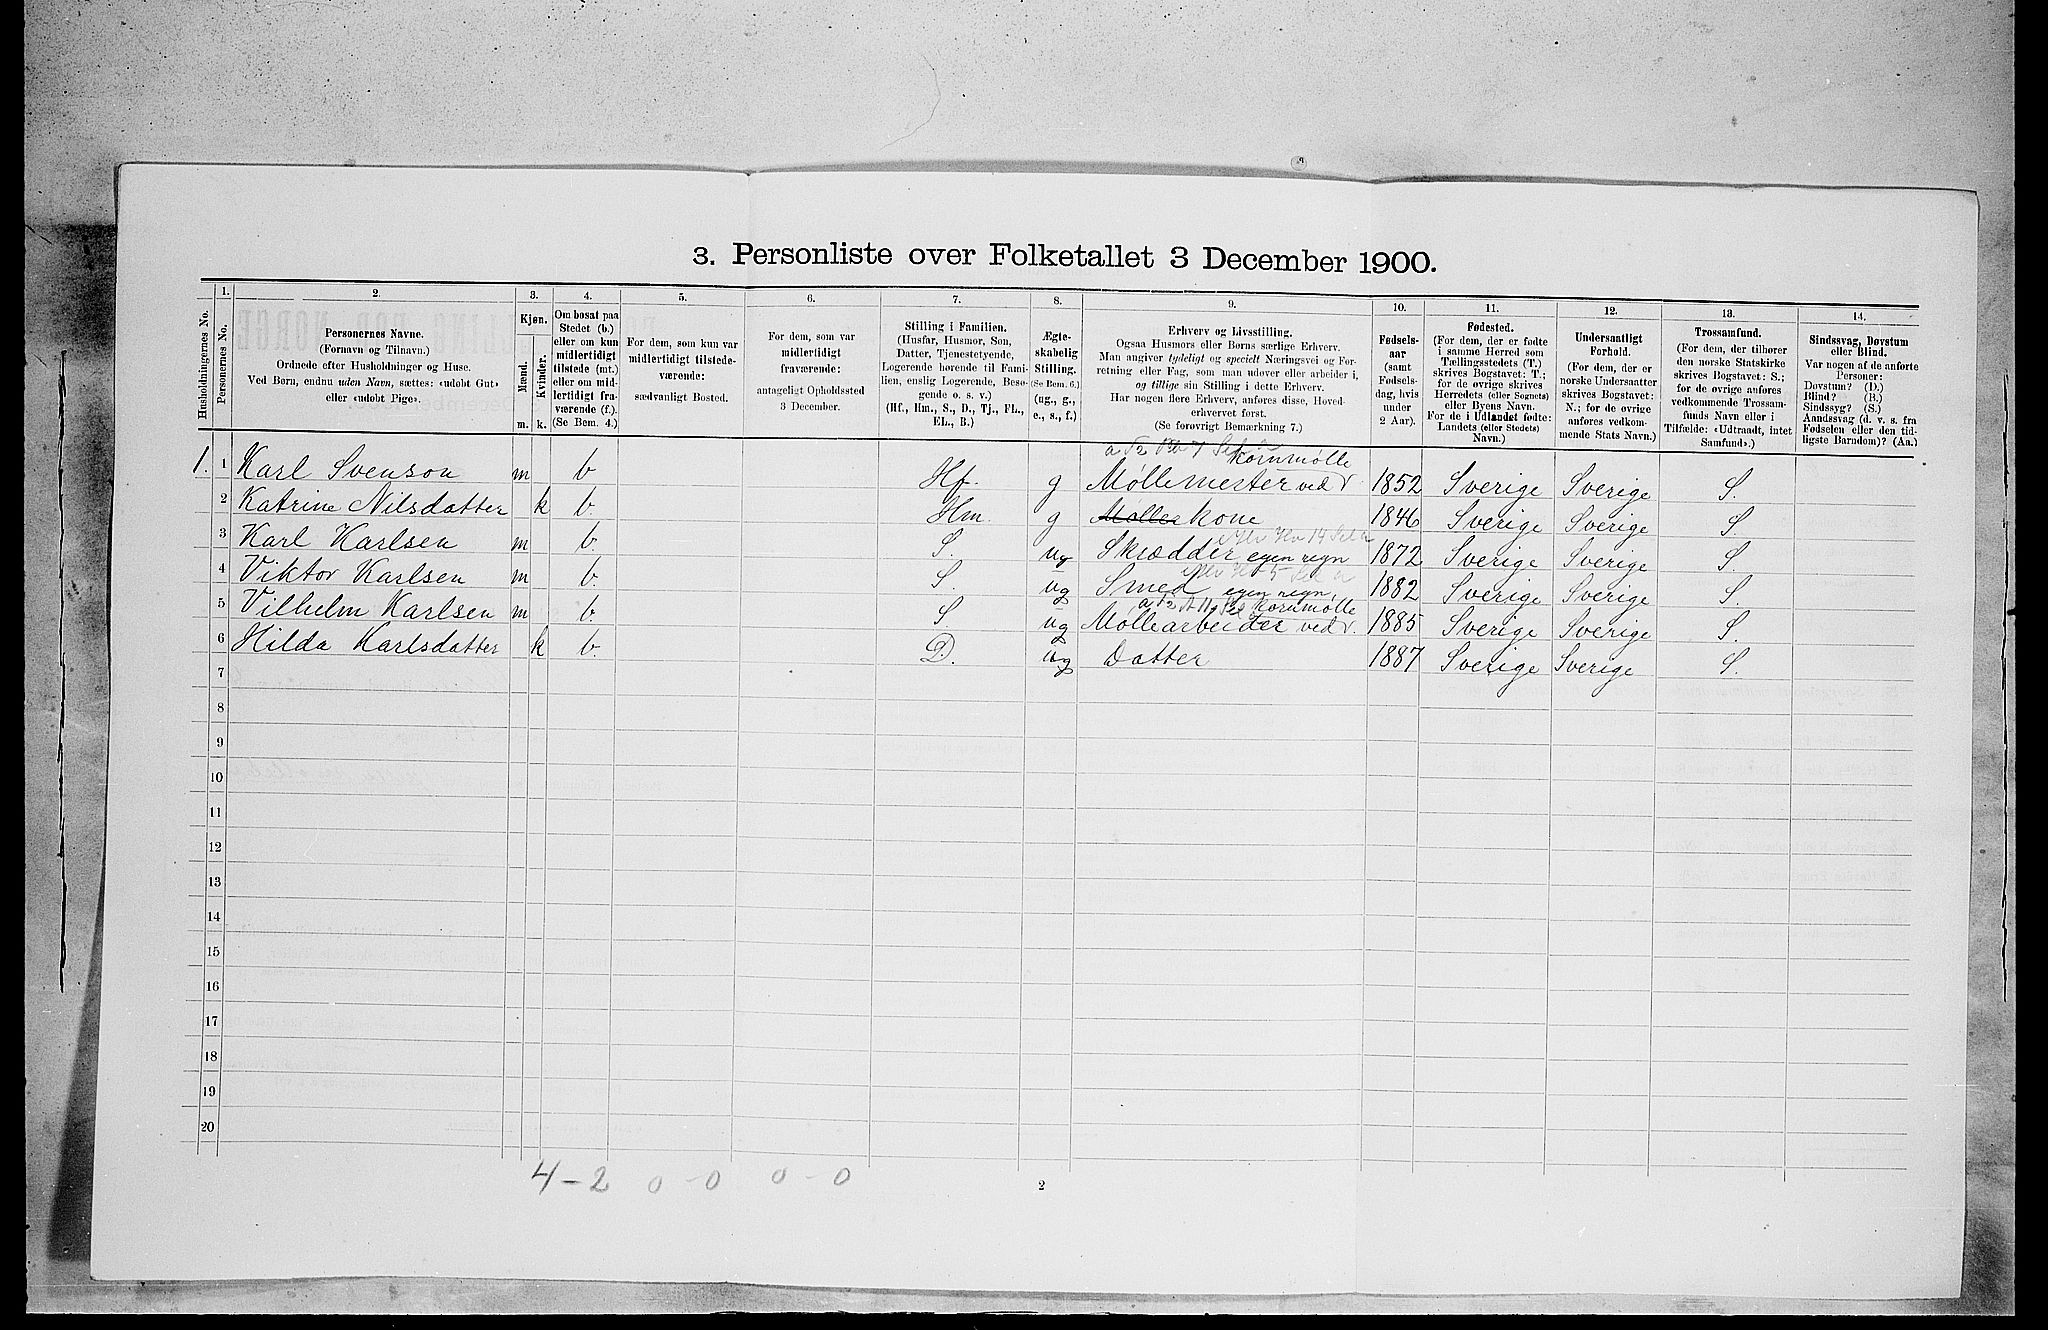 3. Personliste over Folketallet 3 December 1900.
1. 2. 3. 4. 5. 6. 7. 8. 9. 10. 11. 12. 13. 14.
Husholdningernes No.
Personernes No.
Personernes Navne.
(Fornavn og Tilnavn.)
Ordnede efter Husholdninger og Huse.
Ved Børn, endnu uden Navn, sættes: «udøbt Gut»
eller «udøbt Pige».
Kjøn.
Mænd.
Kvinder.
m. k.
Om bosat paa
Stedet (b.)
eller om kun
midlertidigt
tilstede (mt.)
eller om mid-
lertidigt fra-
værende (f.).
(Se Bem. 4.)
For dem, som kun var
midlertidigt tilstede-
værende:
sædvanligt Bosted.
For dem, som var
midlertidigt
fraværende:
antageligt Opholdssted
3 December.
Stilling i Familien.
(Husfar, Husmor, Søn,
Datter, Tjenestetyende,
Logerende hørende til Fami-
lien, enslig Logerende, Besø-
gende o. s. v.)
(Hf., Hm., S., D., Tj., FL.,
EL., B.)
Ægte-
skabelig
Stilling.
(Se Bem. 6.)
(ug., g.,
e., s., f.)
Erhverv og Livsstilling.
Ogsaa Husmors eller Børns særlige Erhverv.
Man angiver tydeligt og specielt Næringsvei og For-
retning eller Fag, som man udøver eller arbeider i,
og tillige sin Stilling i dette Erhverv.
Har nogen flere Erhverv, anføres disse, Hoved-
erhvervet først.
(Se forøvrigt Bemærkning 7.)
Fødsels-
aar
(samt
Fødsels-
dag, hvis
under
2 Aar).
Fødested.
(For dem, der er fødte
i samme Herred som
Tællingsstedets (T.)
skrives Bogstavet: T.;
for de øvrige skrives
Herredets (eller Sognets)
eller Byens Navn.
For de i Udlandet fødte:
Landets (eller Stedets)
Navn.)
Undersaatligt
Forhold.
(For dem, der er
norske Undersaatter
skrives Bogstavet:
N.; for de øvrige
anføres vedkom-
mende Stats Navn.)
Trossamfund.
(For dem, der tilhører
den norske Statskirke
skrives Bogstavet: S.;
for de øvrige anføres
vedkommende Trossam-
funds Navn eller i
Tilfælde: «Udtraadt, intet
Samfund».)
Sindssvag, Døvstum
eller Blind.
Var nogen af de anførte
Personer:
Døvstum? (D.)
Blind? (B.)
Sindssyg? (S.)
Aandssvag (d. v. s. fra
Fødselen eller den tid-
ligste Barndom)? (Aa.)
Kornmølle
1. 1 Karl Svenson m b Hf. g Møllemester ved 1852 Sverige Sverige S.
2 Katrine Nilsdatter k b. Hm. g Møllerkone 1846 Sverige Sverige S.
3 Karl Karlsen m b. S. ug Skrædder egen regn 1872 Sverige Sverige S.
4 Viktor Karlsen m b. S. ug Smed egen regn. 1882 Sverige Sverige S.
Kornmølle
5 Vilhelm Karlsen m b. S ug Møllearbeider ved 1885 Sverige Sverige S.
6 Hilda Karlsdatter k b. D. ug Datter 1887 Sverige Sverige S.
7
8
9
10
11
12
13
14
15
16
17
18
19
20
4 - 2 0 - 0 0 - 0
2